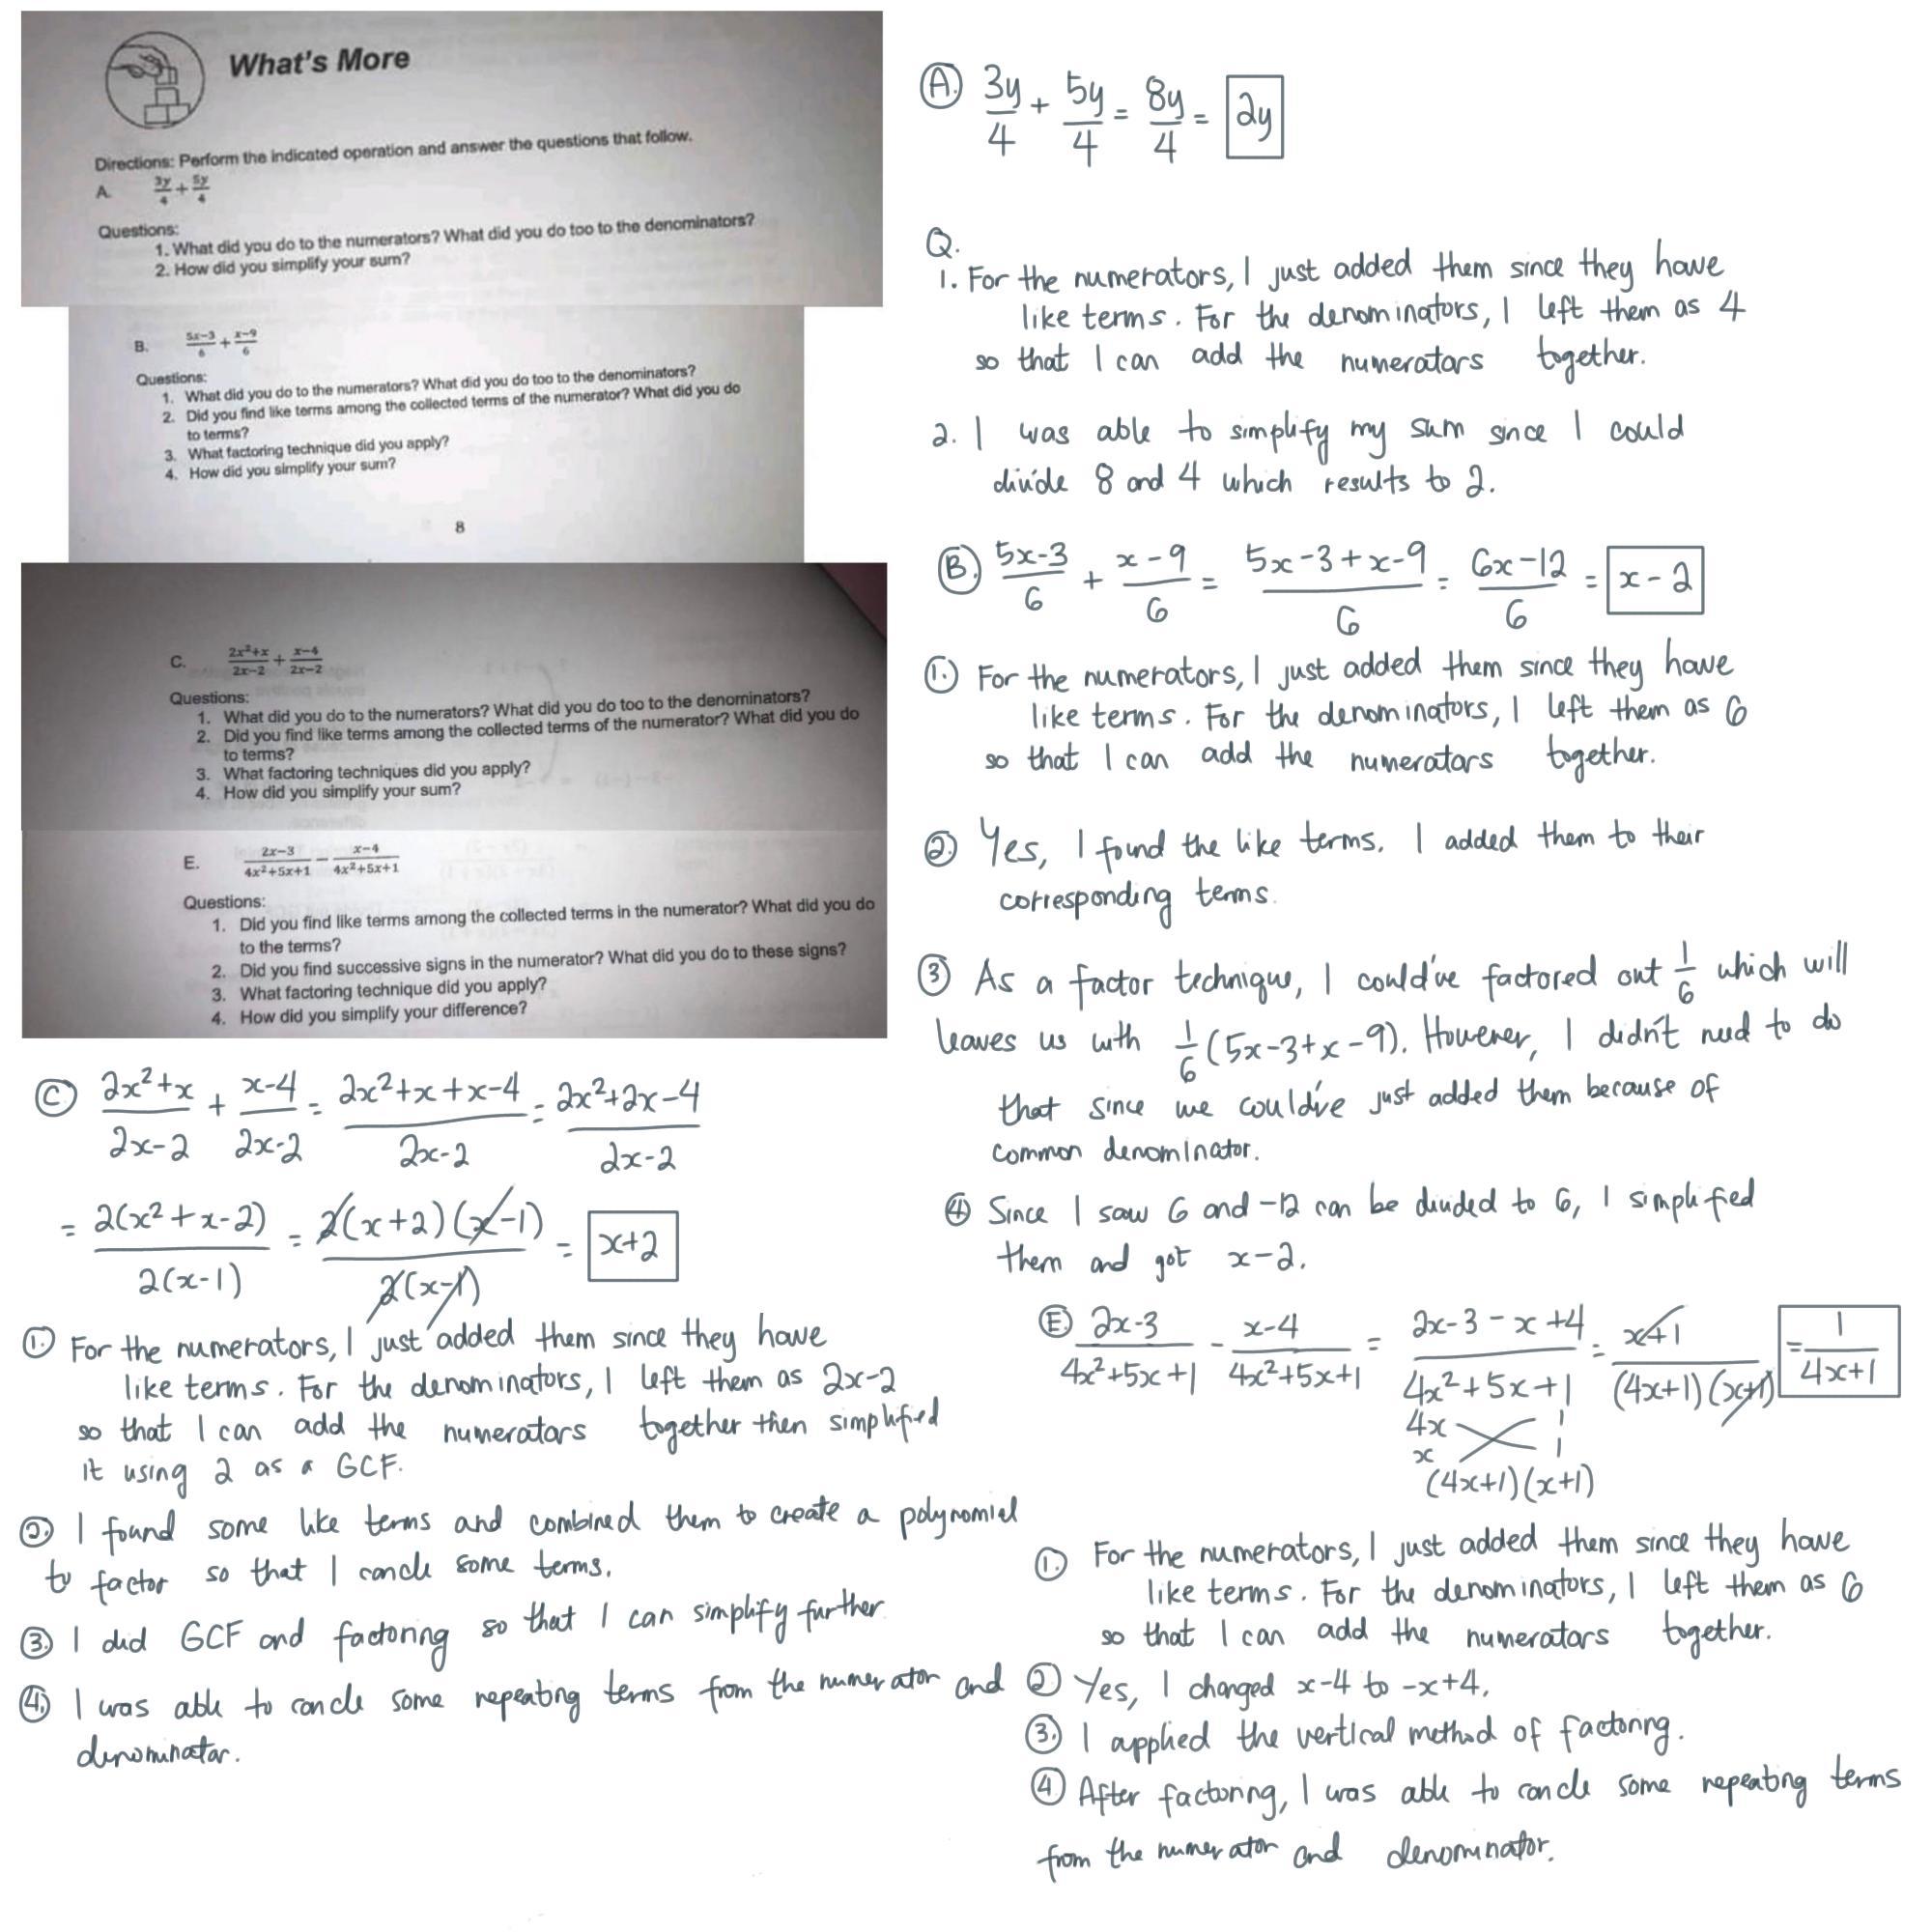 What's More
Directions: Perform the indicated operation and answer the questions that follow.
A. 3y/4 + 5y/4
Questions:
1. What did you do to the numerators? What did you do too to the denominators?
2. How did you simplify your sum?
B. 5x-3/6 + x-9/6
Questions:
1. What did you do to the numerators? What did you do too to the denominators?
2. Did you find like terms among the collected terms of the numerator? What did you do
to terms?
3. What factoring technique did you apply?
4. How did you simplify your sum?
8
C. 2x²+x/2x-2 + x-4/2x-2
Questions:
1. What did you do to the numerators? What did you do too to the denominators?
2. Did you find like terms among the collected terms of the numerator? What did you do
to terms?
3. What factoring techniques did you apply?
4. How did you simplify your sum?
E. 2x-3/4x²+5x+1 - x-4/4x²+5x+1
Questions:
1. Did you find like terms among the collected terms in the numerator? What did you do
to the terms?
2. Did you find successive signs in the numerator? What did you do to these signs?
3. What factoring technique did you apply?
4. How did you simplify your difference?
A. 3y/4 + 5y/4 = 8y/4 = 2y
Q.
1. For the numerators, I just added them since they have
like terms. For the denominators, I left them as 4
so that I can add the numerators together.
2. I was able to simplify my sum since I could
divide 8 and 4 which results to 2.
B. 5x-3/6 + x-9/6 = 5x-3+x-9/6 = 6x-12/6 = x-2
1. For the numerators, I just added them since they have
like terms. For the denominators, I left them as 6
so that I can add the numerators together.
2. Yes, I found the like terms. I added them to their
corresponding terms.
3 As a factor technique, I could've factored out 1/6 which will
leaves us with 1/6(5x-3+x-9). However, I didn't need to do
that since we could've just added them because of
common denominator.
4 Since I saw 6 and -12 can be divided to 6, I simplified
them and got x-2.
C 2x²+x/2x-2 + x-4/2x-2 = 2x²+x+x-4/2x-2 = 2x²+2x-4/2x-2
= 2(x²+x-2)/2(x-1) = 2(x+2)(x-1)/2(x-1) = x+2
1. For the numerators, I just added them since they have
like terms. For the denominators, I left them as 2x-2
so that I can add the numerators together then simplified
it using 2 as a GCF.
2. I found some like terms and combined them to create a polynomial
to factor so that I cancle some terms.
3. I did GCF and factoring so that I can simplify further
4. I was able to cancle some repeating terms from the numerator and
denominator.
E 2x-3/4x²+5x+1 - x-4/4x²+5x+1 = 2x-3-x+4/4x²+5x+1 = x+1/(4x+1)(x+1) = 1/4x+1
4x 1
x 1
(4x+1)(x+1)
1. For the numerators, I just added them since they have
like terms. For the denominators, I left them as 6
so that I can add the numerators together.
2 Yes, I changed x-4 to -x+4.
3. I applied the vertical method of factoring.
4 After factoring, I was able to cancle some repeating terms
from the numerator and denominator.